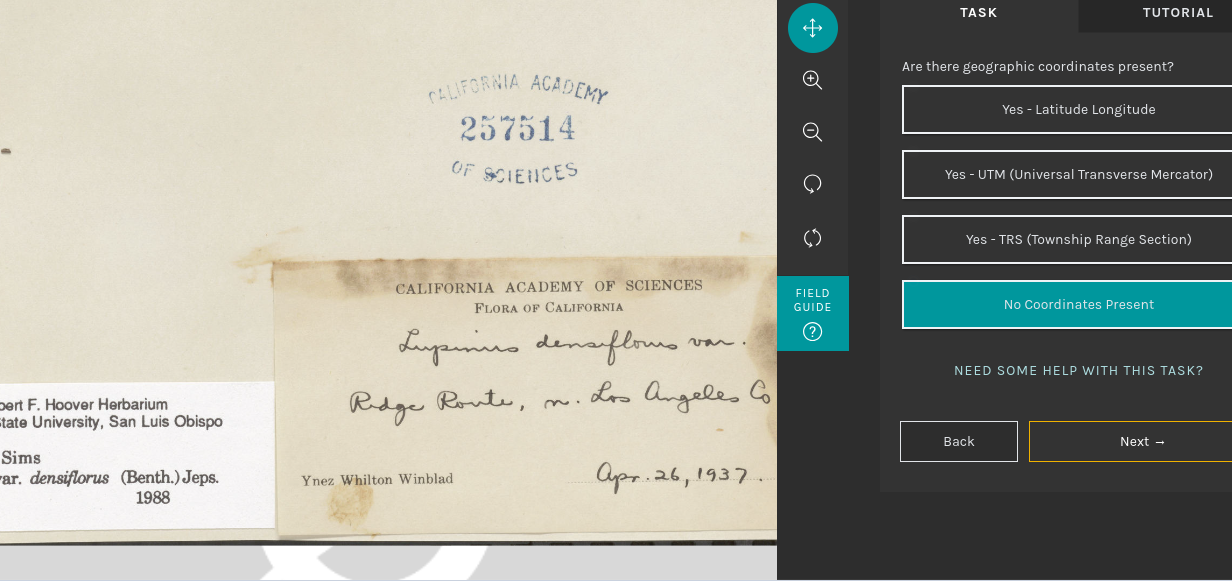 CALIFORNIA ACADEMY
257514
OF SCIENCES
CALIFORNIA ACADEMY OF SCIENCES
FLORA OF CALIFORNIA
Lupinus densiflorus var.
Ridge Route, n. Los Angeles Co
Ynez Whilton Winblad
Apr. 26, 1937.
bert F. Hoover Herbarium
State University, San Luis Obispo
Sims
var. densiflorus (Benth.) Jeps.
1988
FIELD
GUIDE
?
TASK
TUTORIAL
Are there geographic coordinates present?
Yes - Latitude Longitude
Yes - UTM (Universal Transverse Mercator)
Yes - TRS (Township Range Section)
No Coordinates Present
NEED SOME HELP WITH THIS TASK?
Back
Next →